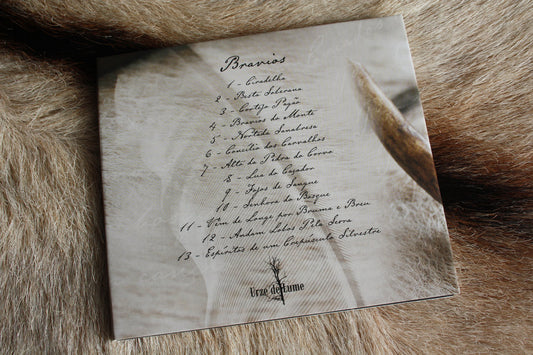 Bravios
1 - Ciradelha
2 - Besta Soberana
3 - Cortejo Pagão
4 - Bravios do Monte
5 - Nortada Sanabresa
6 - Concílio dos Carvalhos
7 - Alto da Pedra do Corvo
8 - Lua do Caçador
9 - Fojos de Sangue
10 - Senhora do Bosque
11 - Vem de Longe por Bruma e Breu
12 - Andam Lobos Pela Serra
13 - Espíritos de um Crepúsculo Silvestre
Urze de Lume